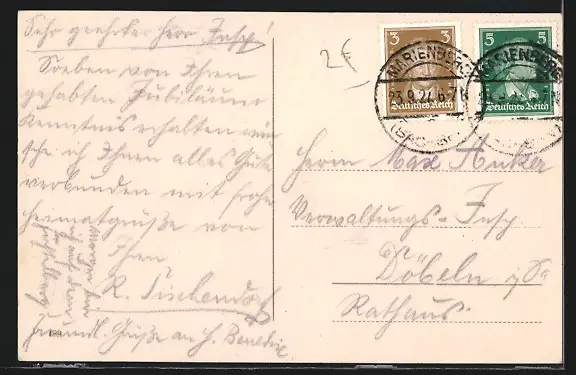 Sehr geehrter Herr Insp!
Soeben von Ihrem
gehabten Jubiläum
Kenntnis erhalten wün-
sche ich Ihnen alles Gute
verbunden mit frohen
Heimatgrüße von
Ihrem
R. Tischendorf
Freundl. Grüße an H.
Morgen bin
ich auf dem
2 €
3 3
Deutsches Reich
5 5
Deutsches Reich
MARIENBERG
MARIENBERG
Herrn Max Anker
Verwaltungs-Insp
Döbeln i/Sa
Rathaus